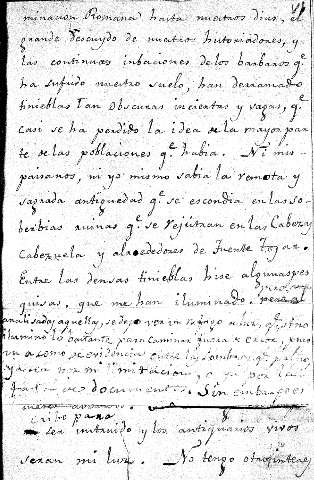 VI
minacion Romana hasta nuestros dias, el
grande descuydo de nuestros historiadores, y
las continuas inbaciones de los barbaros q.e
ha sufrido nuestro suelo, han derramado
tinieblas tan obscuras inciertas y vagas, q.e
casi se ha perdido la idea de la mayor par
te de las poblaciones q.e habia. Ni mis
paisanos, ni yo mismo sabia la remota y
sagrada antiguedad q.e se escondia en las so
berbias ruinas q.e se rejistran en las Cabezas
Cabezuela y alrededores de Fuente Tojar.
Entre las densas tinieblas hise algunas pes
quisas, que me han iluminado.
analisadas aquellas, se dejo ver
para caminar
se evidencia entre las sombras, q.e
por mi limitacion, o ya por la
falta de documentos. Sin embargo es
cribo para
ser instruido y los antiquarios vivos
seran mi luz. No tengo otro interes